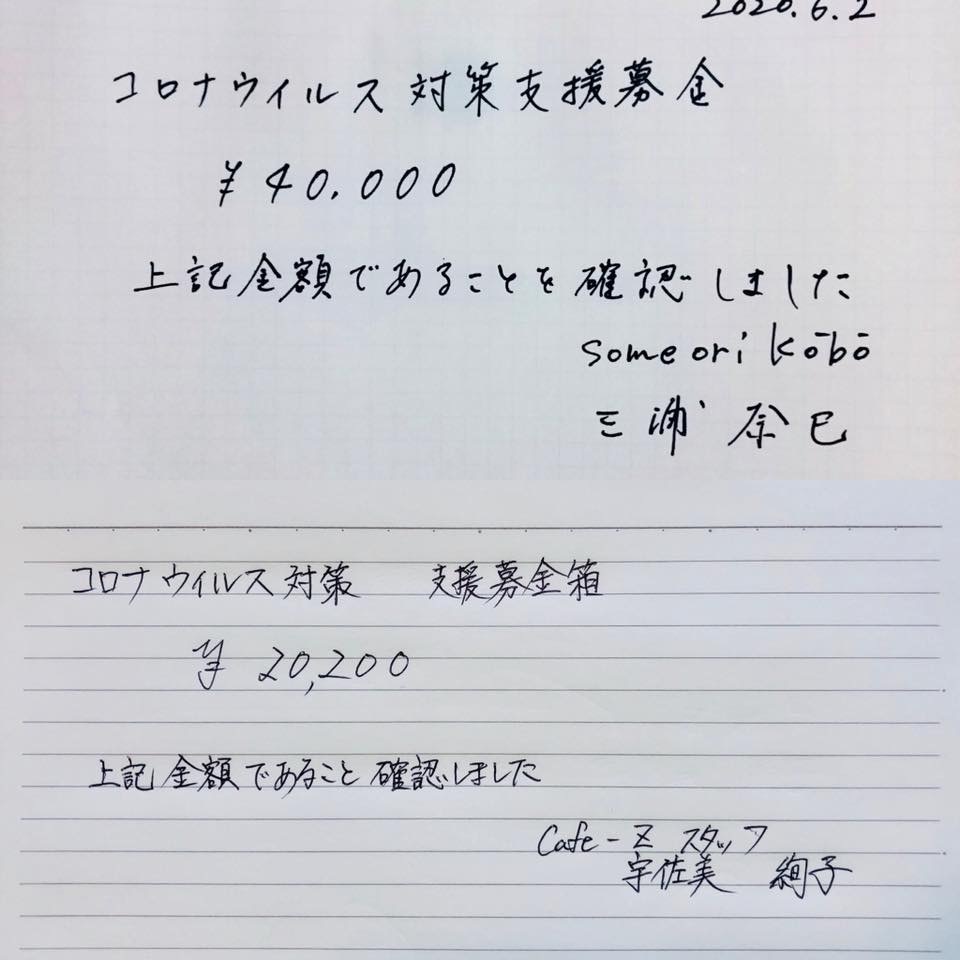 2020.6.2
コロナウイルス対策支援募金
¥40.000
上記金額であることを確認しました
someori kōbō
三浦 奈巳
コロナウイルス対策 支援募金箱
¥20,200
上記金額であること確認しました
Cafe-Z スタッフ
宇佐美 絢子